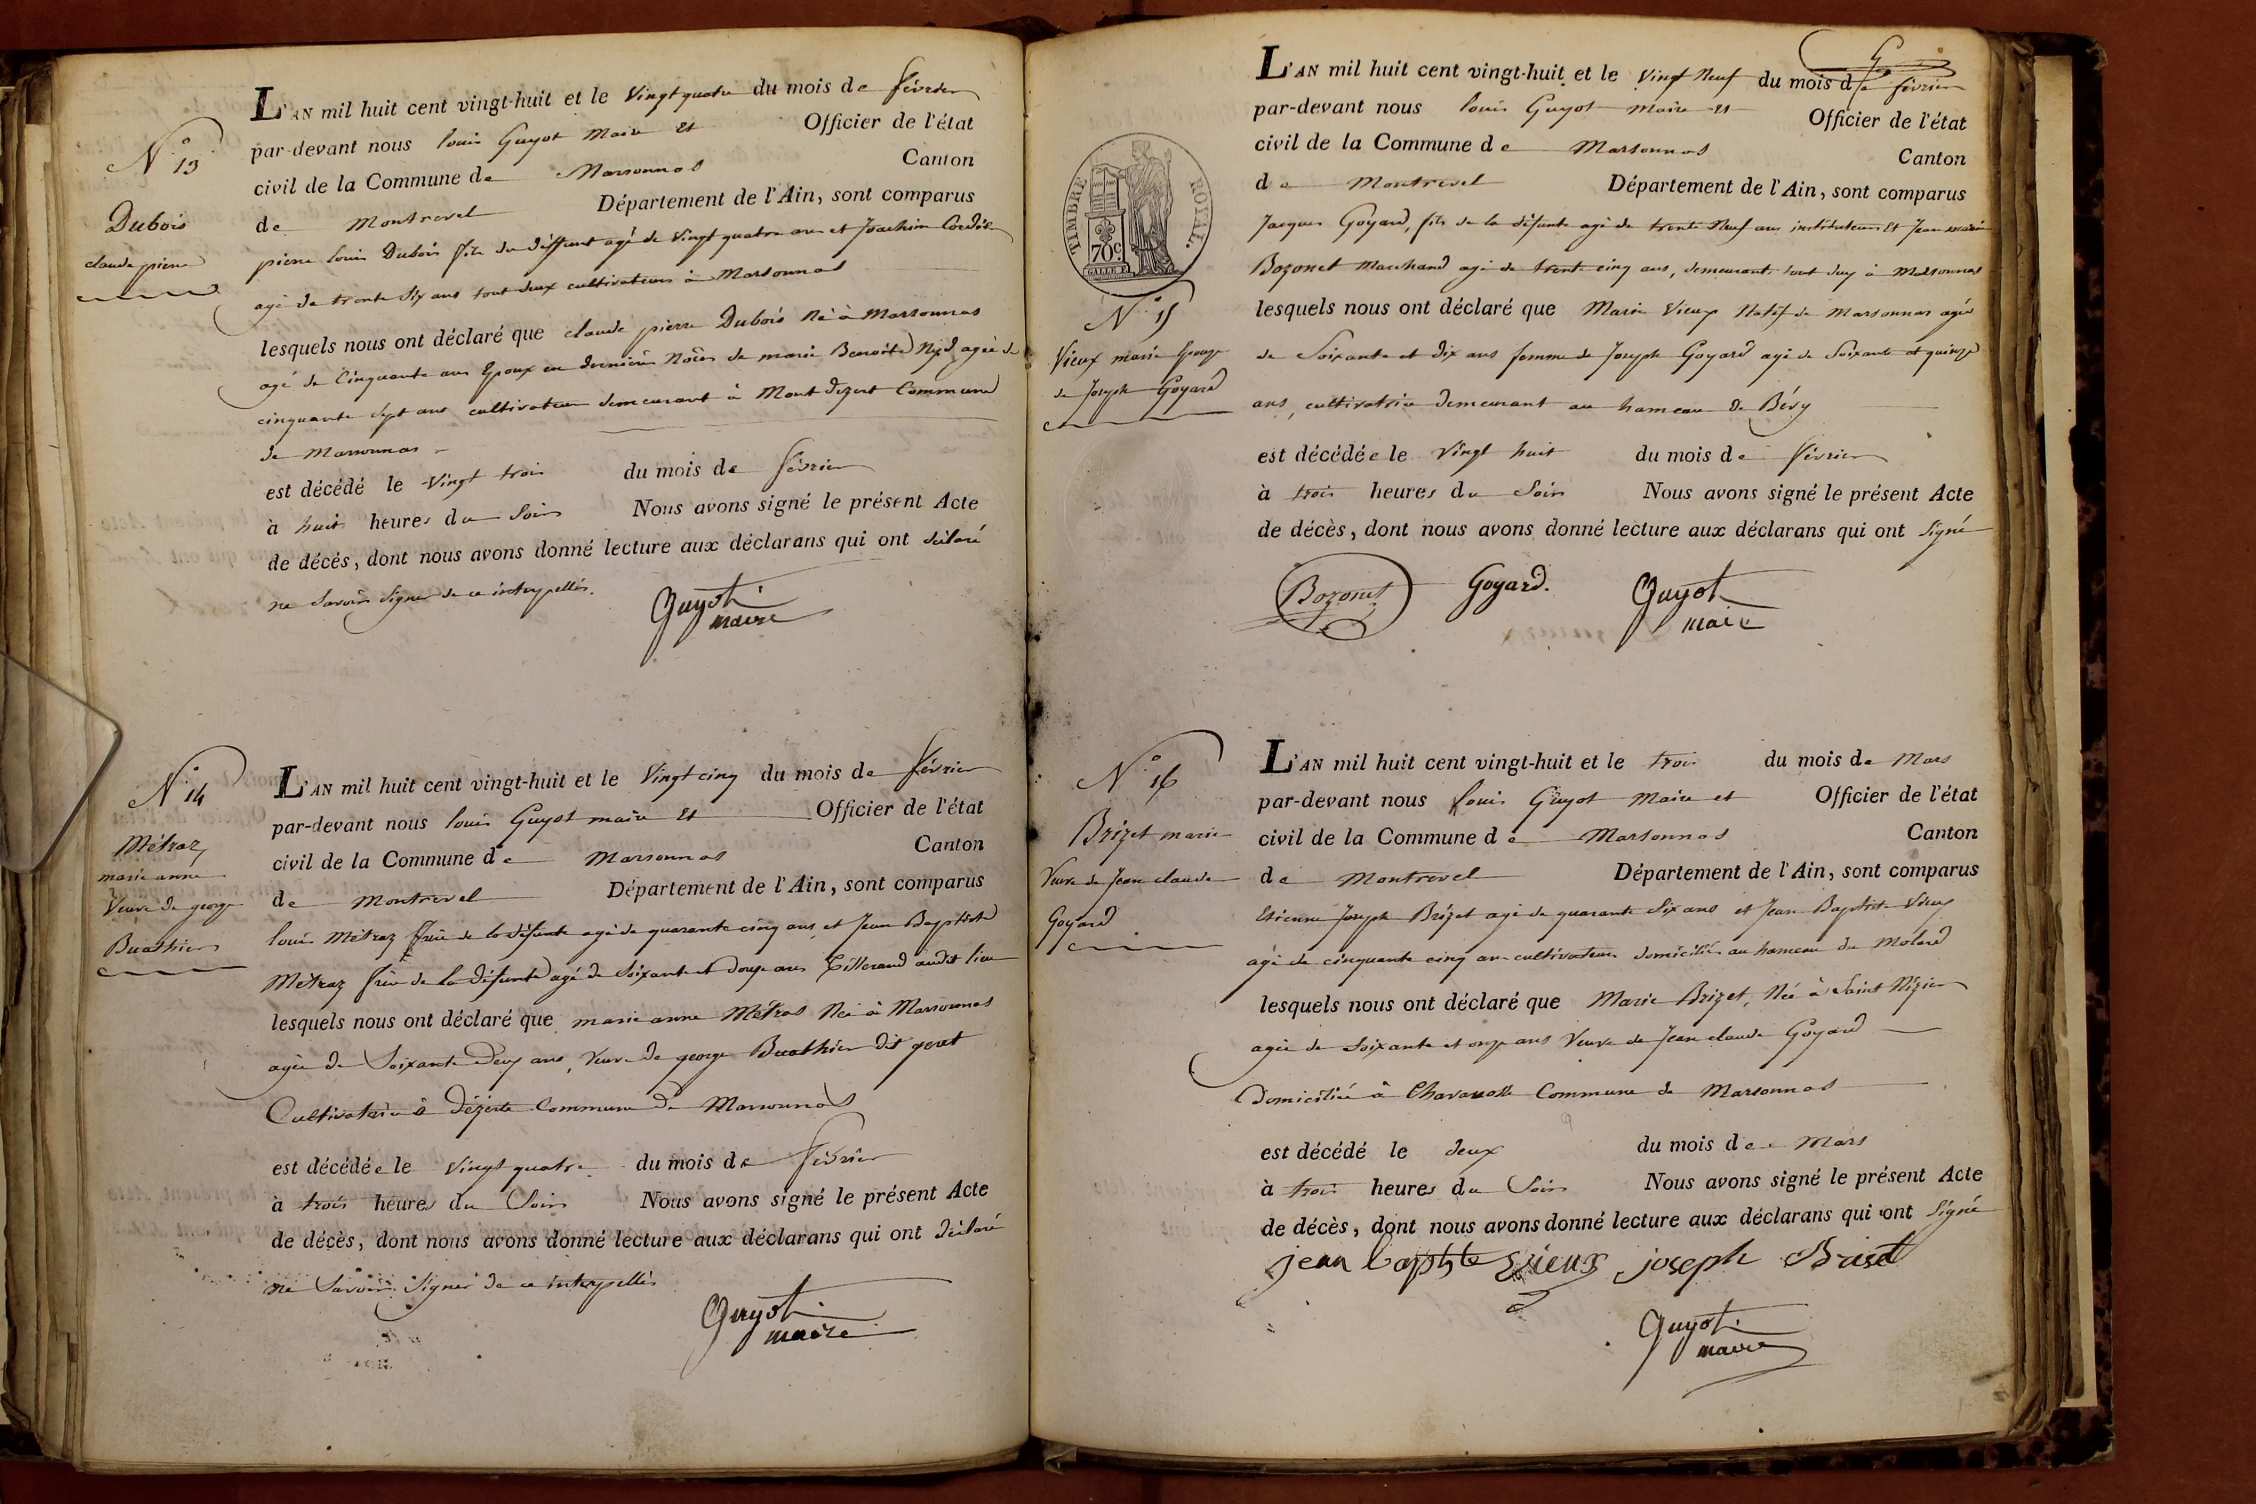 L'AN mil huit cent vingt-huit et le Vingt quatre du mois de février
par-devant nous louis Guyot Maire et Officier de l'état
civil de la Commune de Marsonnas Canton
de Montrevel Département de l'Ain, sont comparus
pierre louis Dubois fils du déffunt agé de Vingt quatre ans et Joachim
agé de trente Six ans tout deux cultivateurs à Marsonnas
lesquels nous ont déclaré que claude pierre Dubois Né à Marsonnas
agé de Cinquante ans Epoux en dernières Noces de marie Benoite agée de
cinquante Sept ans cultivateur demeurant à Mont dezert Commune
de Marsonnas
est décédé le Vingt trois du mois de février
à huit heures du Soir Nous avons signé le présent Acte
de décès, dont nous avons donné lecture aux déclarans qui ont déclaré
ne Savoir Signer de ce interpellés.
Guyot
maire
N° 13
Dubois
claude pierre
L'AN mil huit cent vingt-huit et le Vingt cinq du mois de février
par-devant nous louis Guyot maire et Officier de l'état
civil de la Commune de Marsonnas Canton
de Montrevel Département de l'Ain, sont comparus
louis Métraz frère de la défunte agé de quarante cinq ans et Jean Baptiste
Métraz frère de la défunte agé de Soixante et douze ans Tisserand audit lieu
lesquels nous ont déclaré que marie anne Métras Née à Marsonnas
agée de Soixante Deux ans, Veuve de george Buathier dit
Cultivatrice à Dézerte Commune de Marsonnas
est décédée le Vingt quatre du mois de février
à trois heures du Soir Nous avons signé le présent Acte
de décès, dont nous avons donné lecture aux déclarans qui ont déclaré
ne Savoir Signer de ce interpellés
Guyot
maire
N° 14
Métraz
marie anne
Veuve de george
Buathier
L'AN mil huit cent vingt-huit et le Vingt Neuf du mois de février
par-devant nous louis Guyot maire et Officier de l'état
civil de la Commune de Marsonnas Canton
de Montrevel Département de l'Ain, sont comparus
Jacques Goyard, fils de la défunte agé de trente Neuf ans instituteur Et Jean marie
Bozonet Marchand agé de trente cinq ans, demeurants tout deux à Marsonnas
lesquels nous ont déclaré que Marie Vieux Natif de Marsonnas agée
de Soixante et Dix ans femme de Joseph Goyard agé de Soixante et quinze
ans, cultivatrice demeurant au hameau de Bévy
est décédée le Vingt huit du mois de février
à trois heures du Soir Nous avons signé le présent Acte
de décès, dont nous avons donné lecture aux déclarans qui ont Signé
Bozonet Goyard. Guyot
maire
TIMBRE ROYAL.
70c
N° 15
Vieux marie Epouze
de Joseph Goyard
L'AN mil huit cent vingt-huit et le trois du mois de Mars
par-devant nous louis Guyot Maire et Officier de l'état
civil de la Commune de Marsonnas Canton
de Montrevel Département de l'Ain, sont comparus
Etienne Joseph Brizet agé de quarante Six ans et Jean Baptiste Vieux
agé de cinquante cinq ans cultivateurs domiciliés au hameau du Molard
lesquels nous ont déclaré que Marie Brizet, Née à Saint Nizier
agée de Soixante et onze ans Veuve de Jean claude Goyard
Domiciliée à Commune de Marsonnas
est décédé le deux du mois de Mars
à trois heures du Soir Nous avons signé le présent Acte
de décès, dont nous avons donné lecture aux déclarans qui ont Signé
jean baptiste vieux joseph Briset
Guyot
maire
N° 16
Brizet marie
Veuve de Jean claude
Goyard